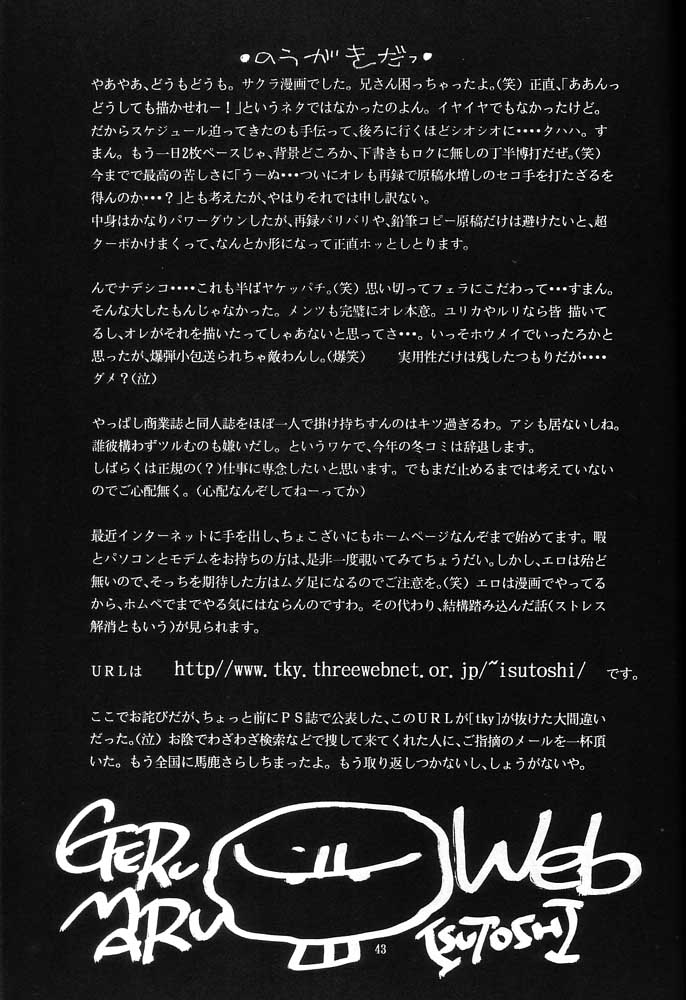 ・のうがきだっ・
やあやあ、どうもどうも。サクラ漫画でした。兄さん困っちゃったよ。(笑) 正直、「ああんっ
どうしても描かせれー！」というネタではなかったのよん。イヤイヤでもなかったけど。
だからスケジュール迫ってきたのも手伝って、後ろに行くほどシオシオに････タハハ。す
まん。もう一日2枚ペースじゃ、背景どころか、下書きもロクに無しの丁半博打だぜ。(笑)
今までで最高の苦しさに「うーぬ･･･ついにオレも再録で原稿水増しのセコ手を打たざるを
得んのか･･･？」とも考えたが、やはりそれでは申し訳ない。
中身はかなりパワーダウンしたが、再録バリバリや、鉛筆コピー原稿だけは避けたいと、超
ターボかけまくって、なんとか形になって正直ホッとしとります。
んでナデシコ････これも半ばヤケッパチ。(笑) 思い切ってフェラにこだわって･･･すまん。
そんな大したもんじゃなかった。メンツも完璧にオレ本意。ユリカやルリなら皆 描いて
てるし、オレがそれを描いたってしゃあないと思ってさ･･･。いっそホウメイでいったろかと
思ったが、爆弾小包送られちゃ敵わんし。(爆笑) 実用性だけは残したつもりだが････
ダメ？(泣)
やっぱし商業誌と同人誌をほぼ一人で掛け持ちすんのはキツ過ぎるわ。アシも居ないしね。
誰彼構わずツルむのも嫌いだし。というワケで、今年の冬コミは辞退します。
しばらくは正規の(？)仕事に専念したいと思います。でもまだ止めるまでは考えていない
のでご心配無く。(心配なんぞしてねーってか)
最近インターネットに手を出し、ちょこざいにもホームページなんぞまで始めてます。暇
とパソコンとモデムをお持ちの方は、是非一度覗いてみてちょうだい。しかし、エロは殆ど
無いので、そっちを期待した方はムダ足になるのでご注意を。(笑) エロは漫画でやってる
から、ホムペでまでやる気にはならんのですわ。その代わり、結構踏み込んだ話(ストレス
解消ともいう)が見られます。
URLは http//www.tky.threewebnet.or.jp/~isutoshi/ です。
ここでお詫びだが、ちょっと前にPS誌で公表した、このURLが[tky]が抜けた大間違い
だった。(泣) お陰でわざわざ検索などで捜して来てくれた人に、ご指摘のメールを一杯頂
いた。もう全国に馬鹿さらしちまったよ。もう取り返しつかないし、しょうがないや。
GERU MARU Web
ISUTOSHI
43